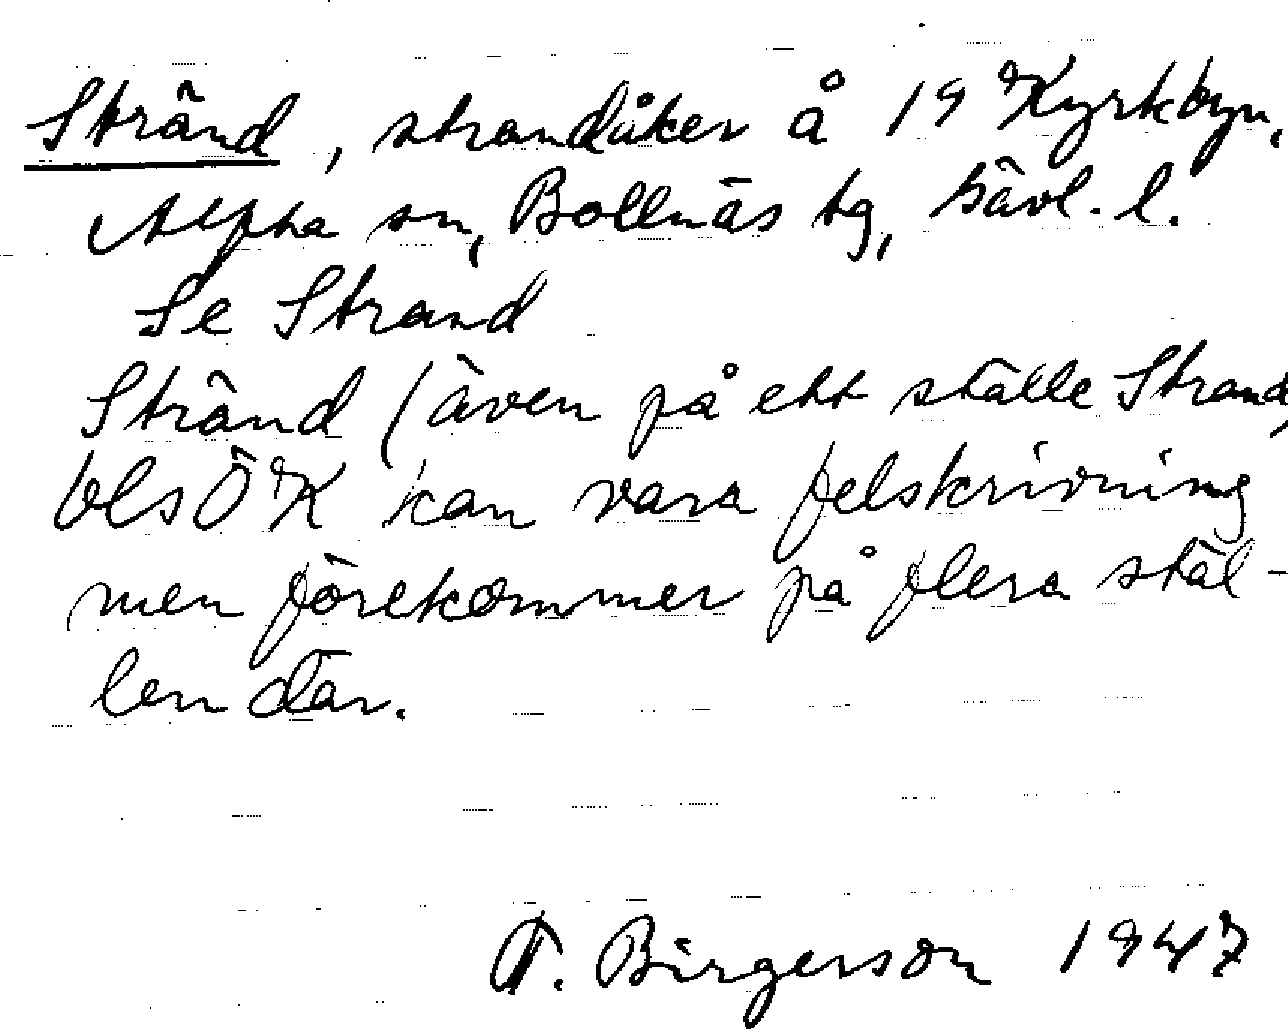 Stränd, strandåker å 19 Kyrkbyn,
Alfta sn, Bollnäs tg, Gävl. l.
Se Strand
Stränd (även på ett ställe Strand)
blsÖK kan vara felskrivning
men förekommer på flera stäl-
len där.
T. Birgerson 1947